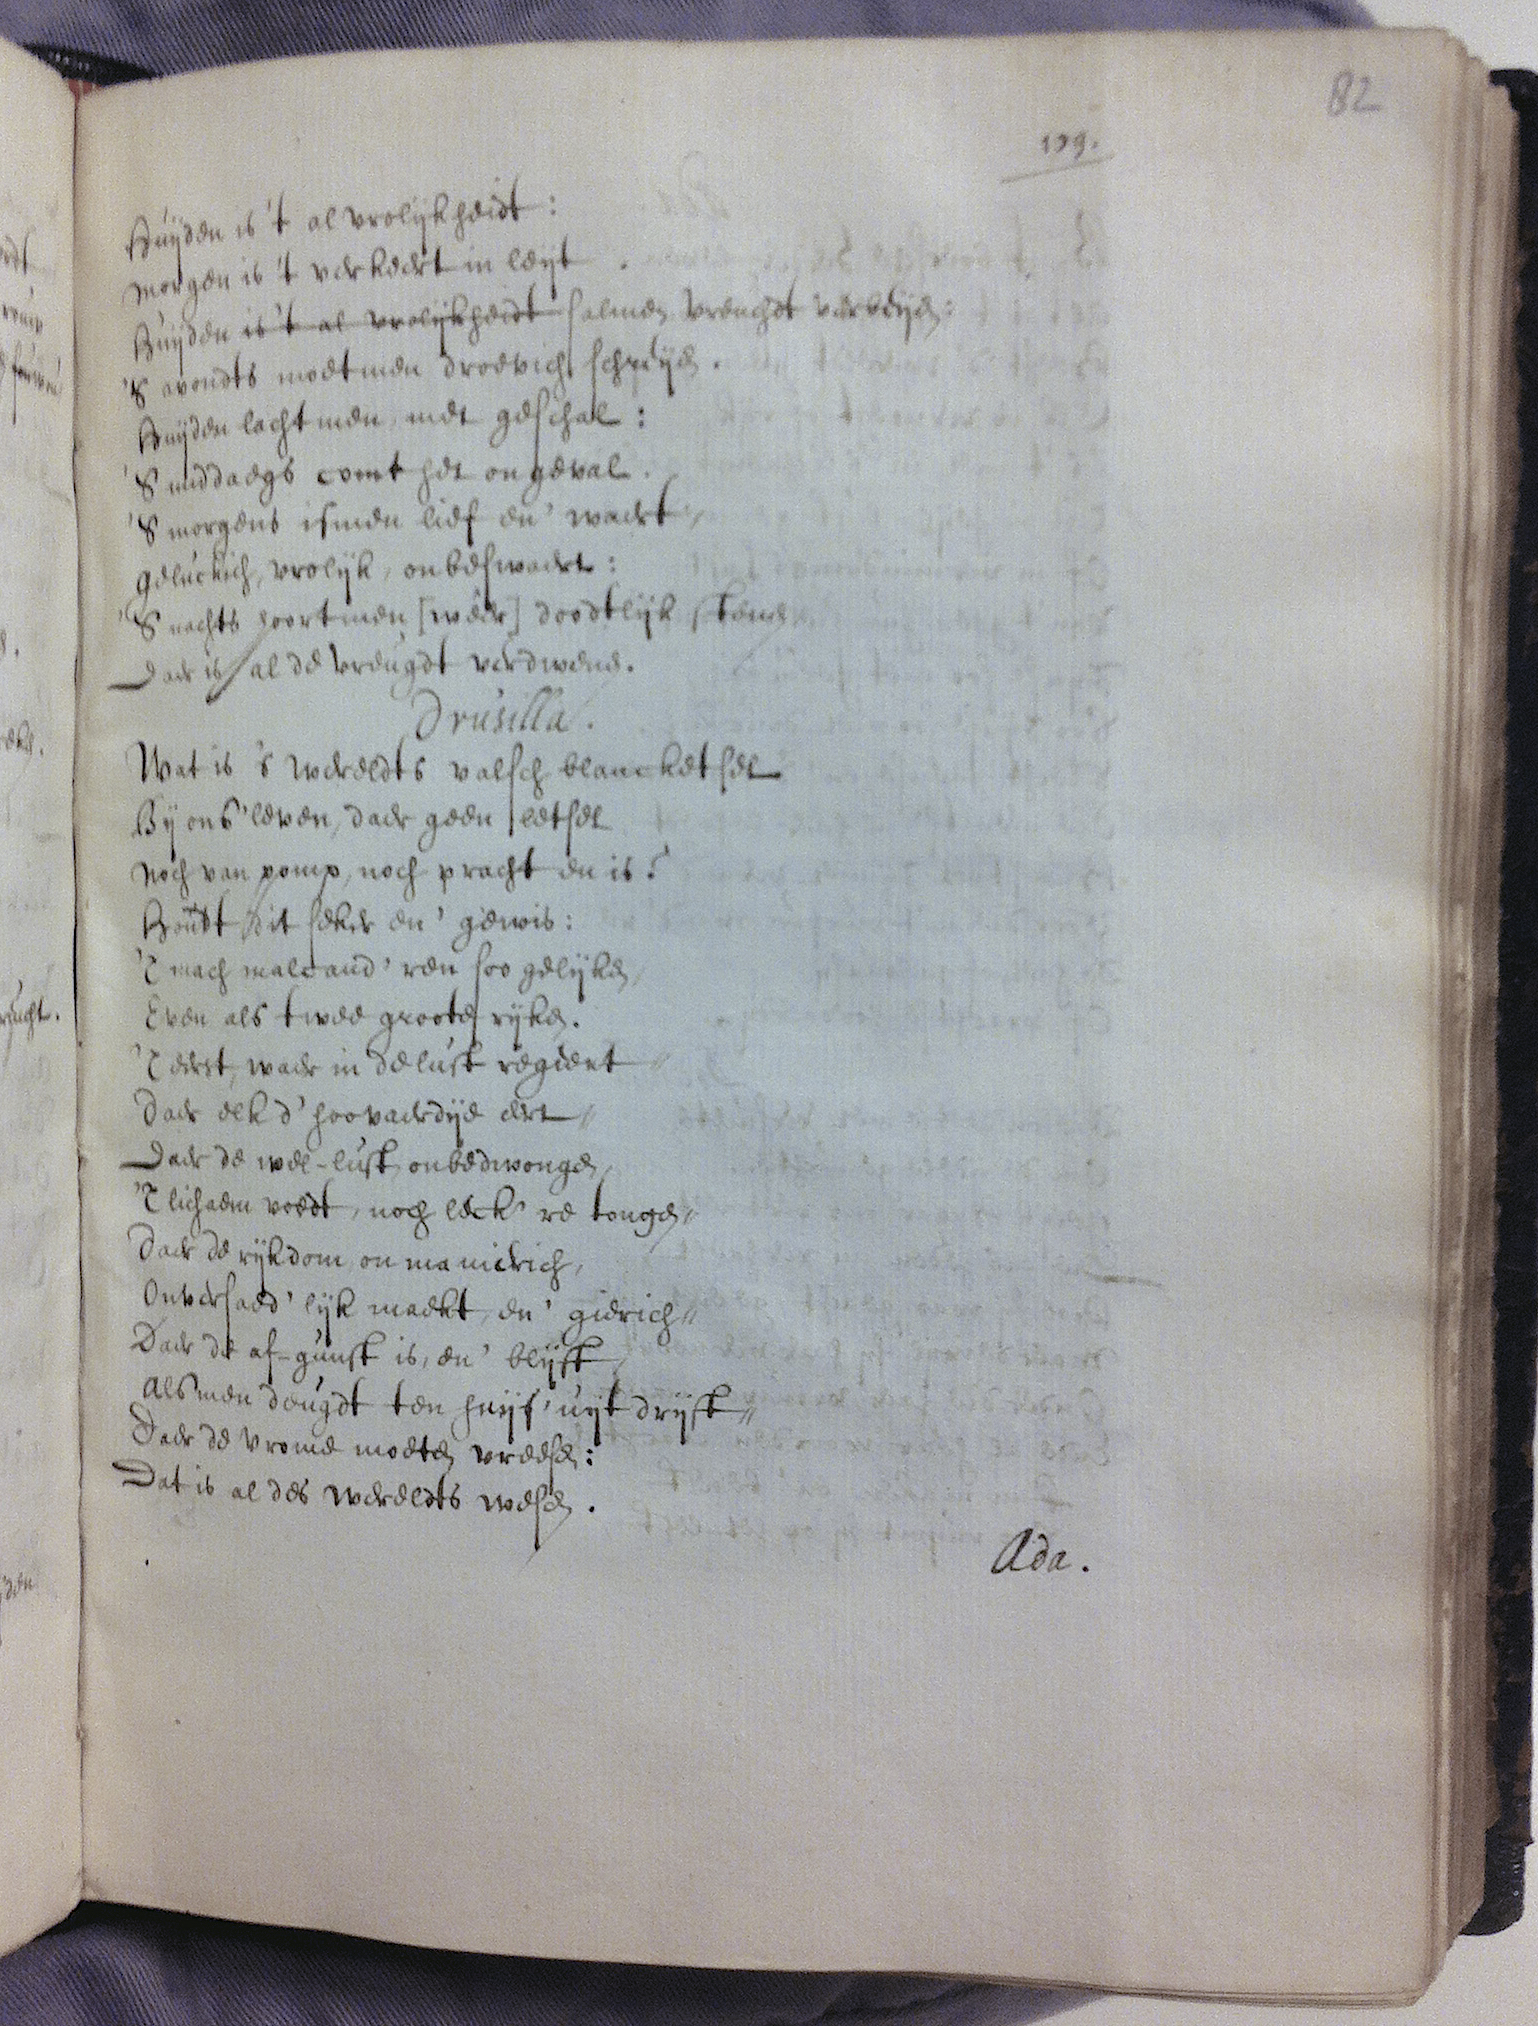 82
179.
Huijden is 't al vrolijkheidt:
Morgen is 't verkeert in leijt.
Huijden is 't al vrolijkheidt salmen vreuchdt verbeijden:
'S avondts moetmen droevich schreijen.
Huijden lachtmen, met geschal:
'S middaegs comt het ongeval.
'S morgens ismen lief en' waert,
Geluckich, vrolijk, onbeswaert:
'S nachts hoortmen [weer] doodtlijk stenen
Daer is al de vreugdt verdwenen.
Drusilla.
Wat is 's werelds valsch blancketsel
Bij ons' leven, daer geen letsel
Noch van pomp, noch pracht en is?
Houdt dit seker en' gewis:
'T mach malcand'ren soo gelijken,
Even als twee groote rijken.
'T eerst, waer in de lust regiert
Daer elk d'hoovaerdije eert
Daer de wel-lust onbedwongen,
'T lichaem voedt, noch leck're tongen
Daer de rijkdom onmanierich,
Onversaed'lijk maekt, en' gierich
Daer de af-gunst is, en' blijft,
Alsmen deugdt ten huijs' uijt drijft
Daer de vrome moeten vreesen:
Dat is al des wereldts wesen.
Ada.